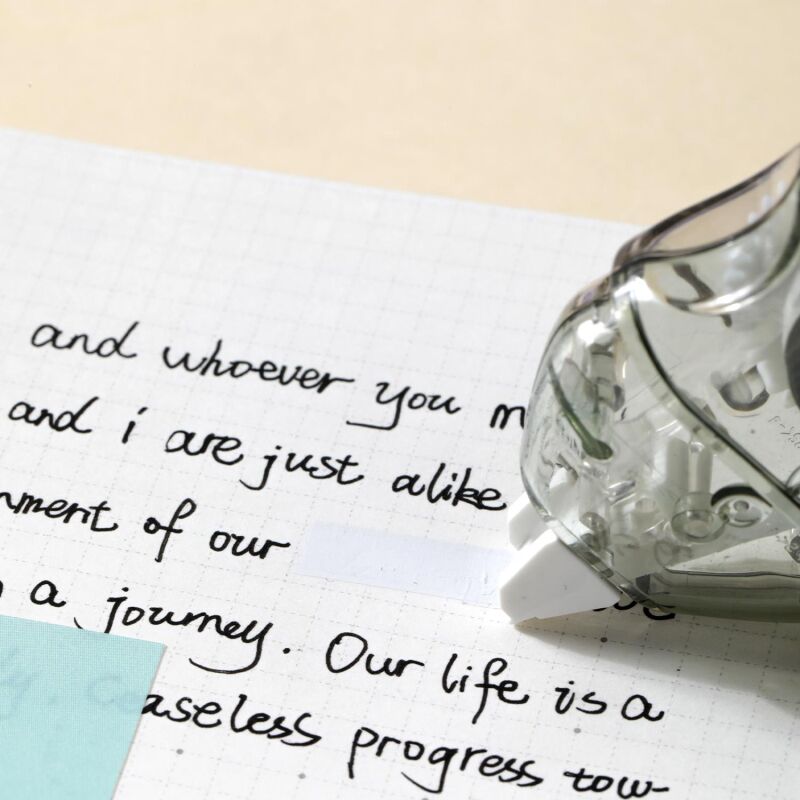 and whoever you m
and i are just alike
nment of our
a journey. Our life is a
aseless progress tow-